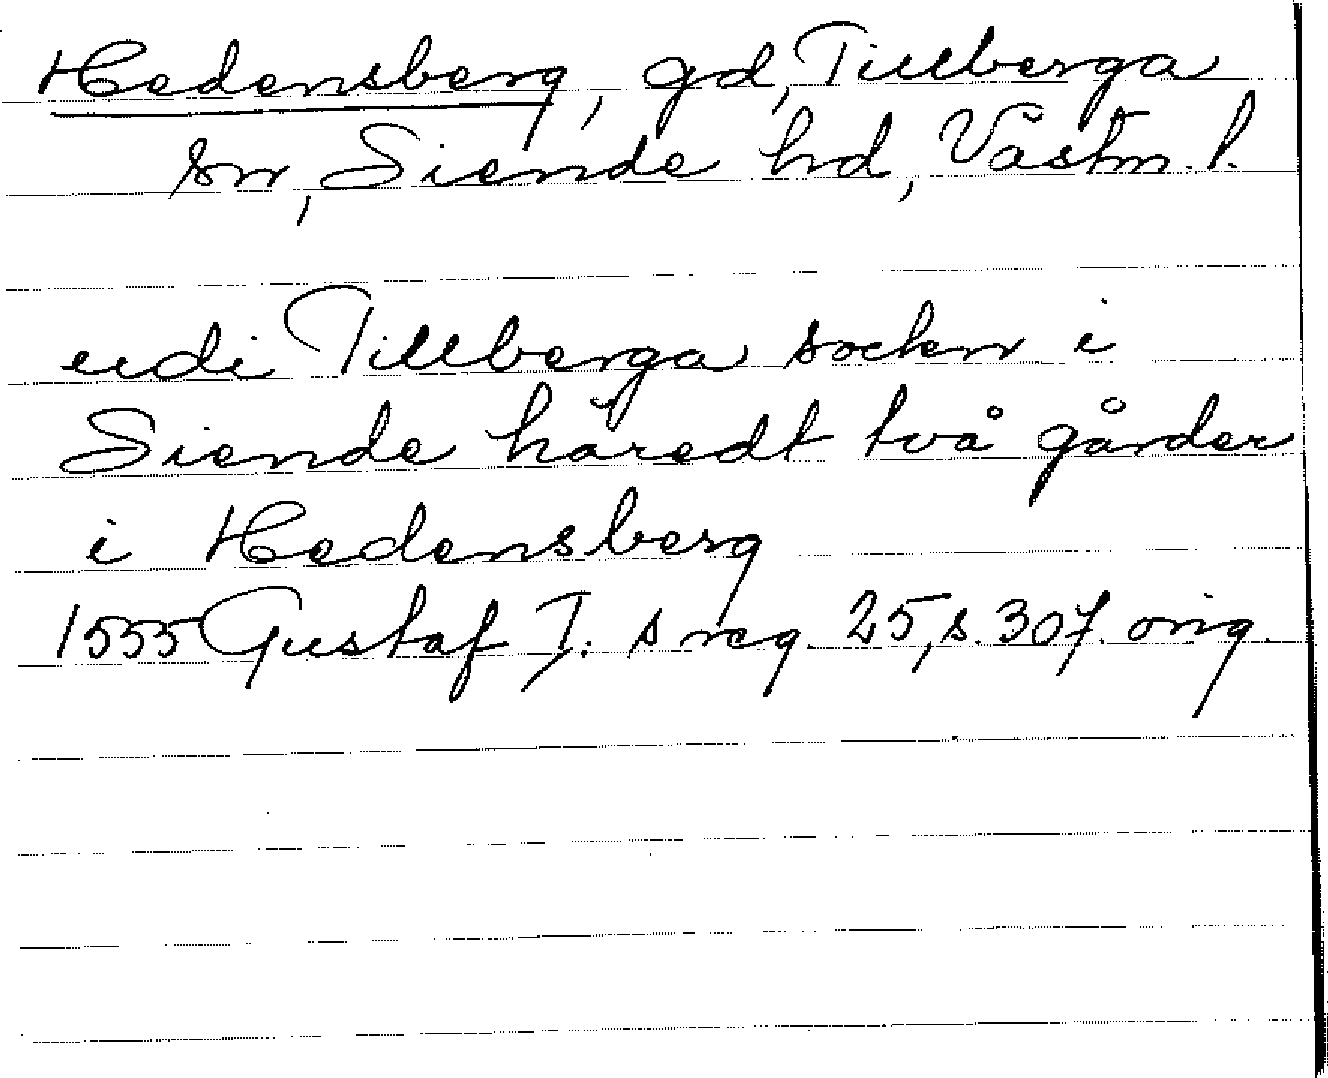 Hedensberg, gd, Tillberga
sn, Siende hd, Västm. l.
udi Tillberga sockn i
Siende häredt två gårder
i Hedensberg
1555 Gustaf I:s reg. 25, s. 307. orig.